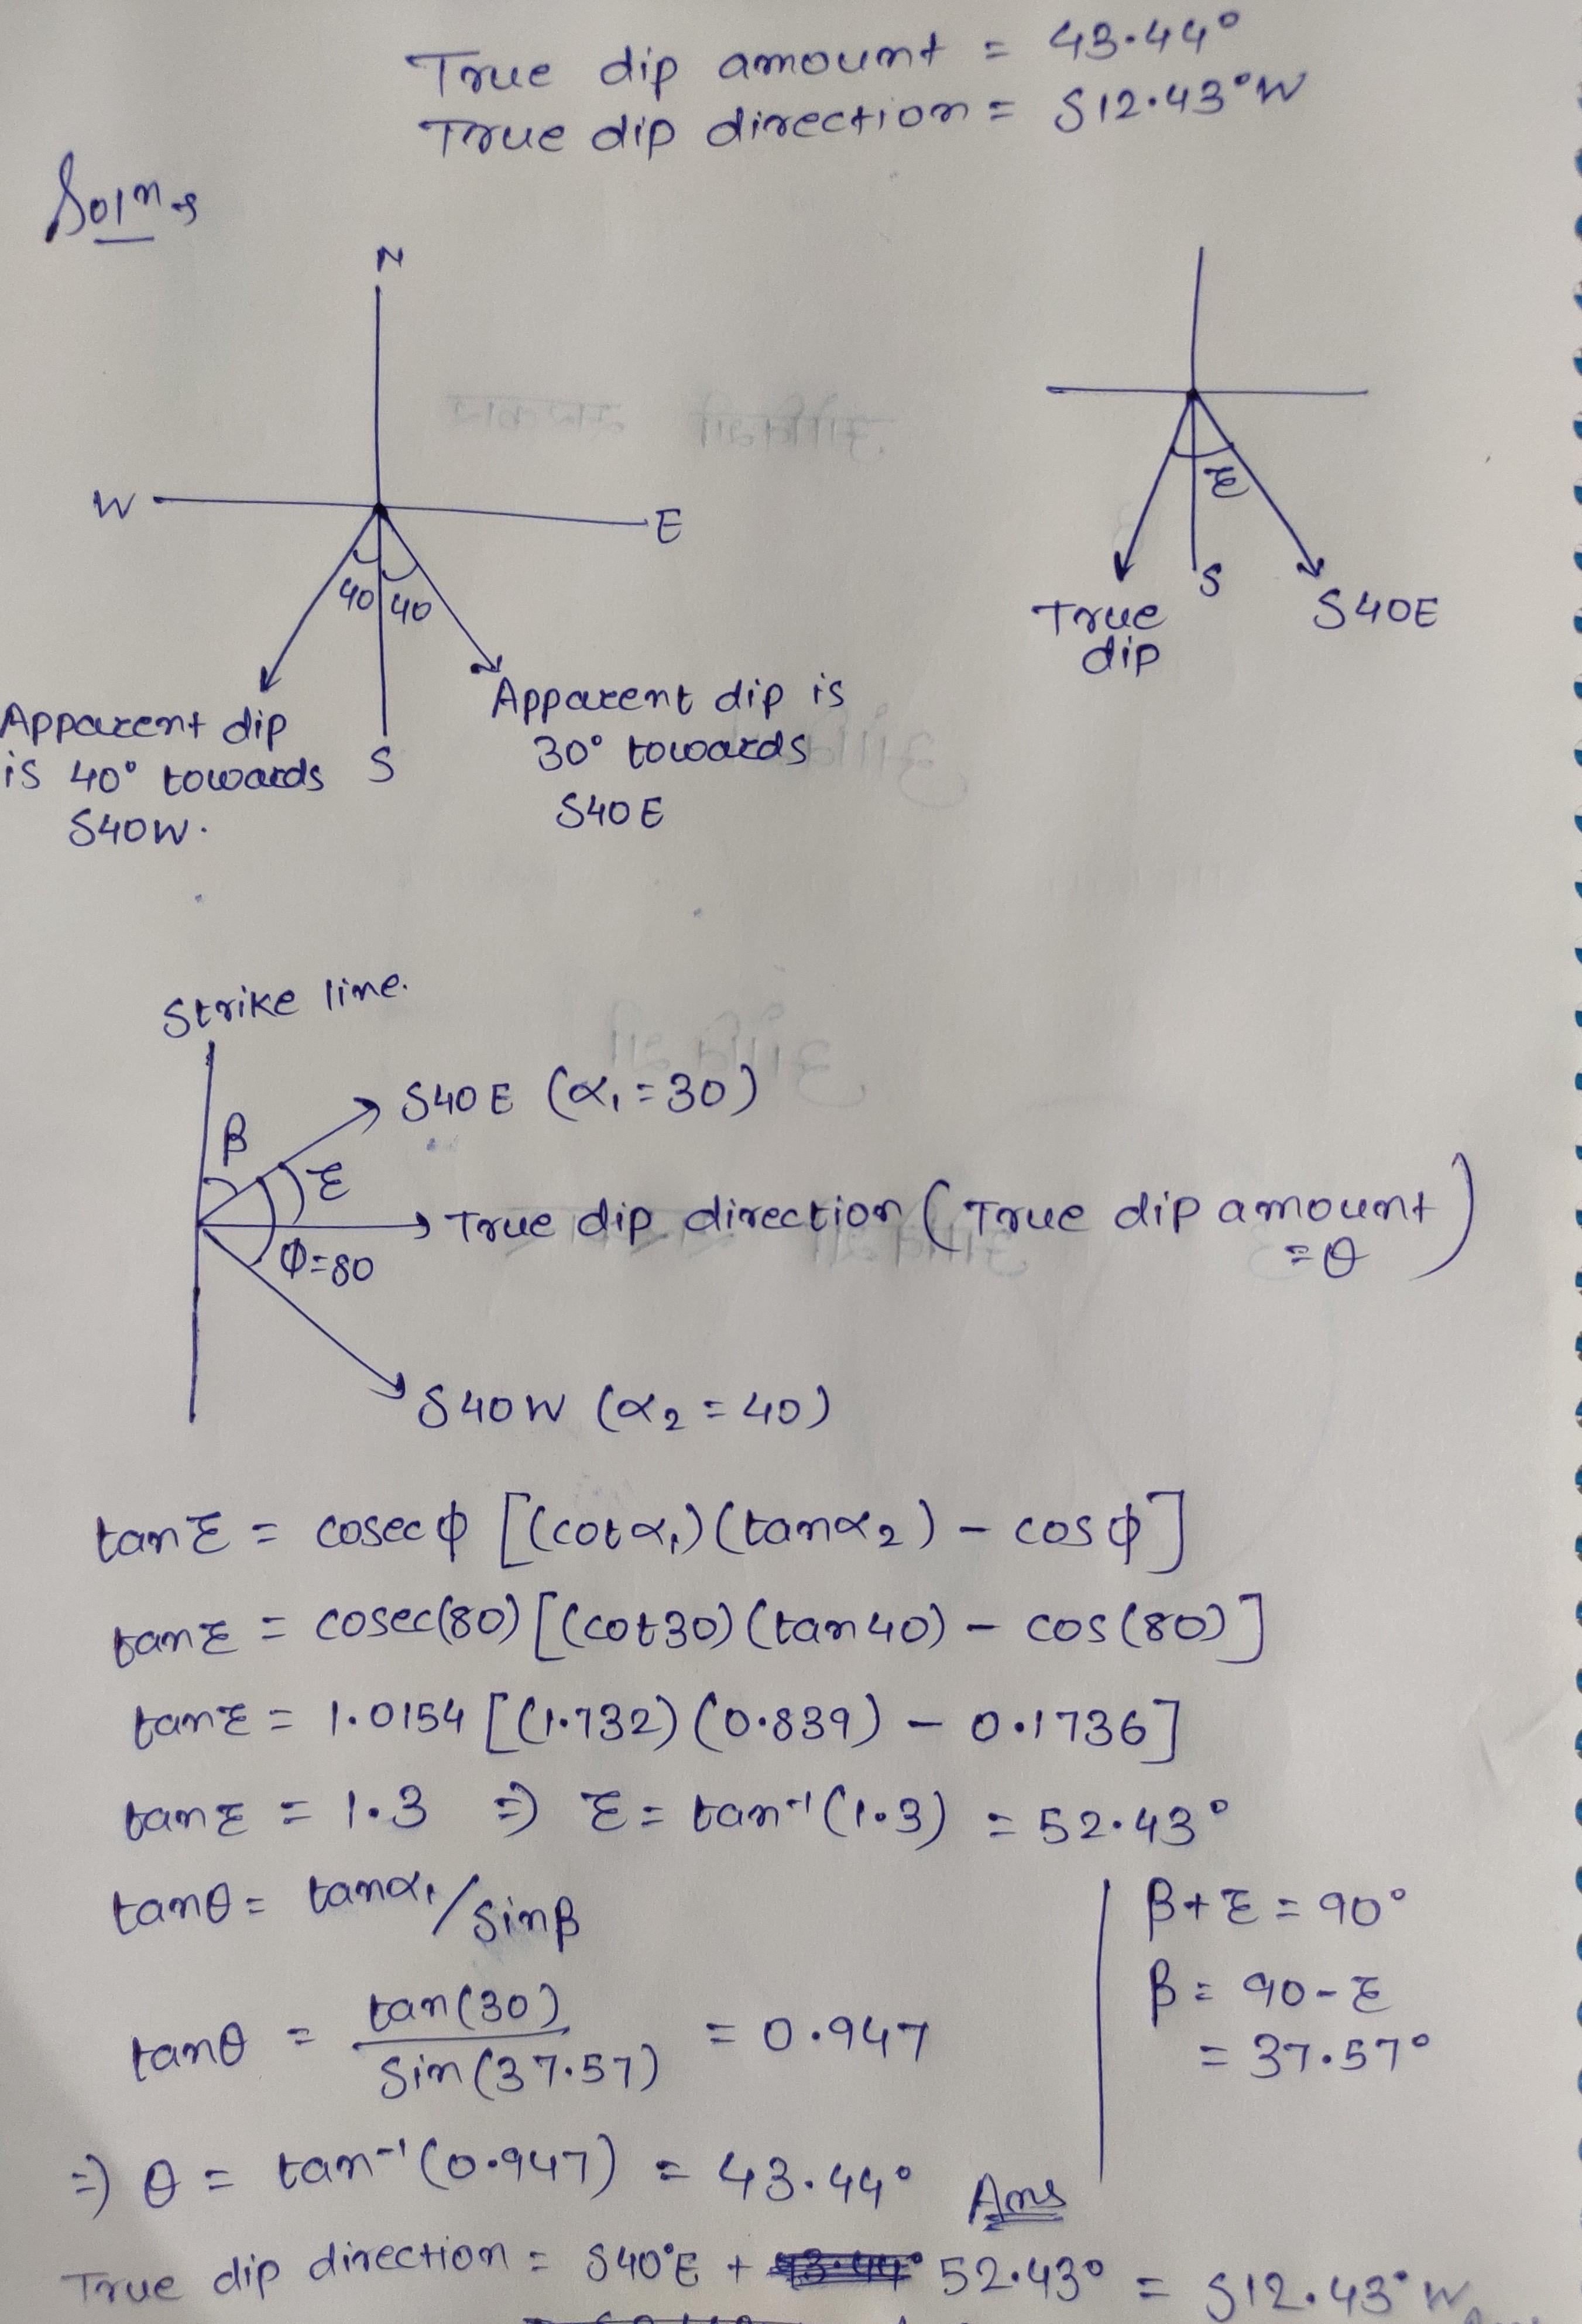 True dip amount = 43.44°
True dip direction = S12.43°W
Solⁿ→
N
W
E
40
40
S
Apparent dip
is 40° towards
S40W.
Apparent dip is
30° towards
S40E
ε
S
True
dip
S40E
Strike line.
β
S40E (α₁=30)
ε
True dip direction (True dip amount
=θ)
Φ=80
S40W (α₂=40)
tanε = cosecϕ [(cotα₁)(tanα₂) - cosϕ]
tanε = cosec(80)[(cot30)(tan40) - cos(80)]
tanε = 1.0154 [(1.732)(0.839) - 0.1736]
tanε = 1.3 ⇒ ε = tan⁻¹(1.3) = 52.43°
tanθ = tanα₁/sinβ
tanθ = tan(30)/Sin(37.57) = 0.947
β+ε = 90°
β = 90-ε
= 37.57°
⇒ θ = tan⁻¹(0.947) = 43.44° Ans
True dip direction = S40°E + 52.43° = S12.43°W